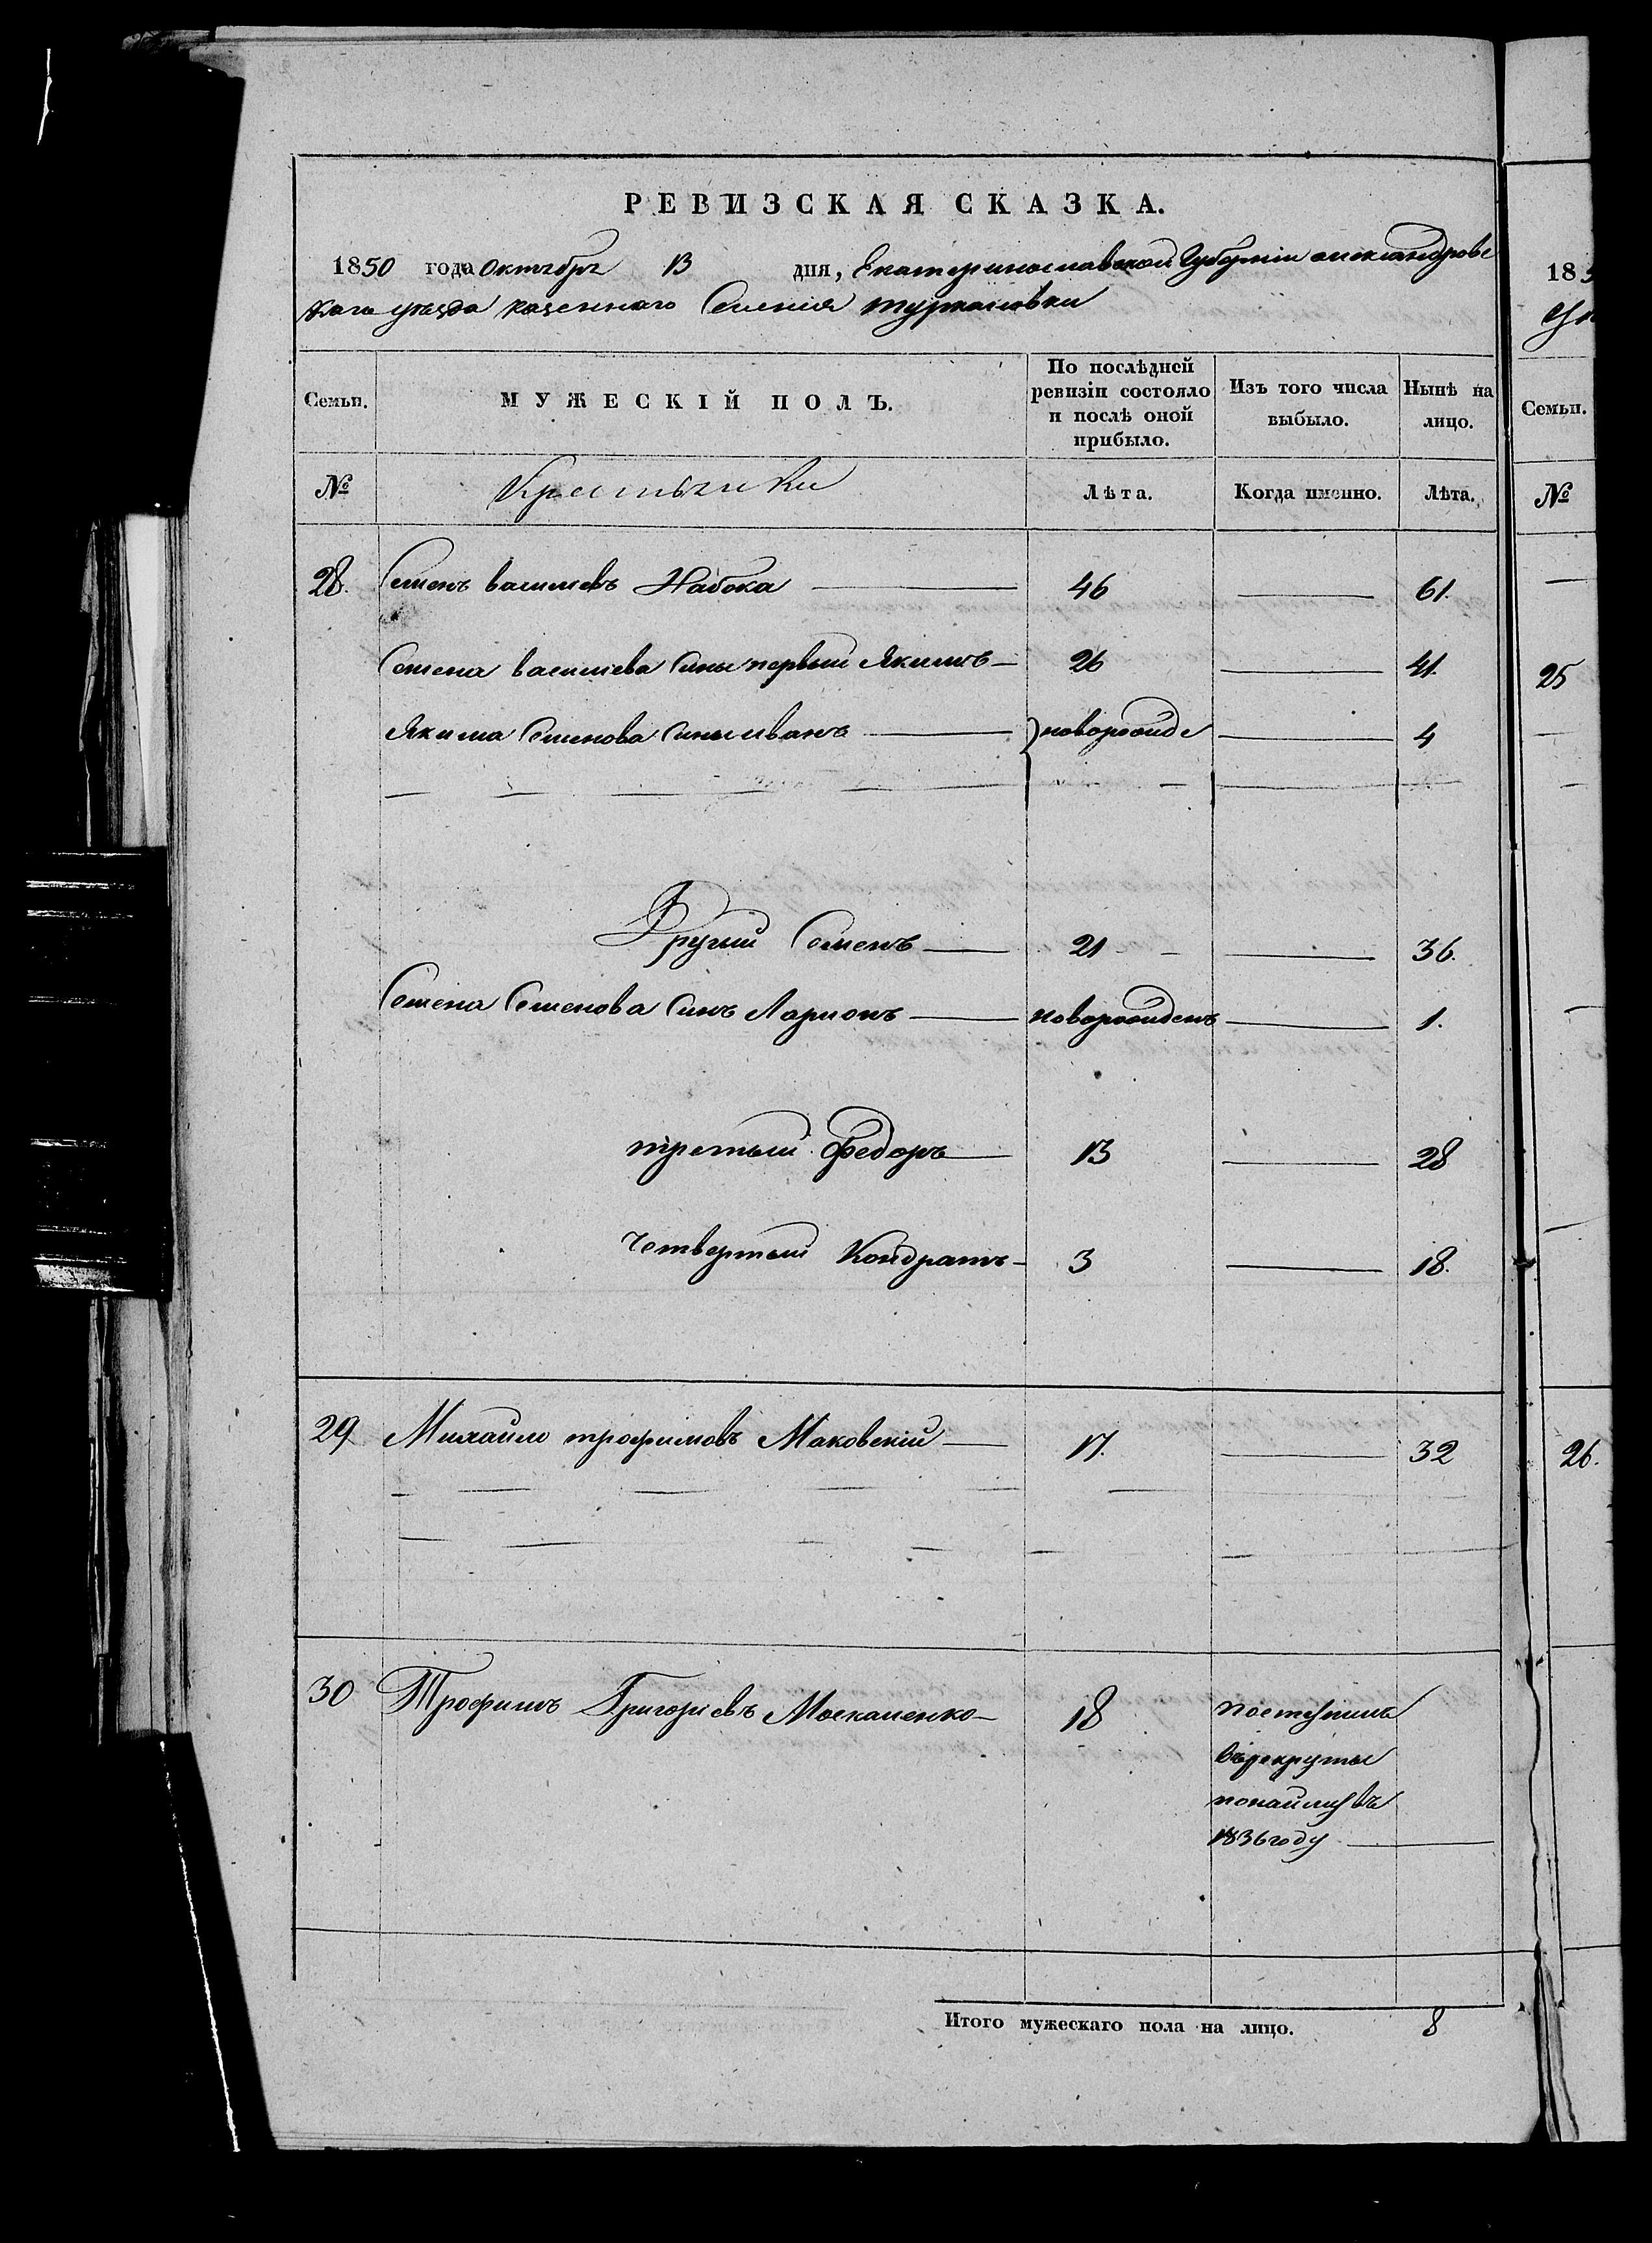 РЕВИЗСКАЯ СКАЗКА.
1850 года Октября 13 дня, Екатеринославской Губернии александровс
кого уезда казенного Селения туркеновки
Семьи. МУЖЕСКІЙ ПОЛЪ. По послѣдней ревизіи состояло и послѣ оной прибыло. Изъ того числа выбыло. Нынѣ на лицо.
№ Крестьяне Лѣта. Когда именно. Лѣта.
28. Семенъ василиевъ Набока 46 61.
Семена василиева сины первый Якимъ 26 41.
Якима Семенова сины иванъ новорожде 4
Другий Семенъ 21 36.
Семена Семенова Синъ Ларионъ новорожденъ 1.
третьий Федоръ 13 28
Четвертый Кондратъ 3 18.
29 Михайло трофимовъ Маковский 17. 32
30 Трофимъ Григориевъ Москаленко 18 поступилъ
врекруты
понайму въ
1836 году
Итого мужескаго пола на лицо. 8
185
Семьи.
№
25
26.